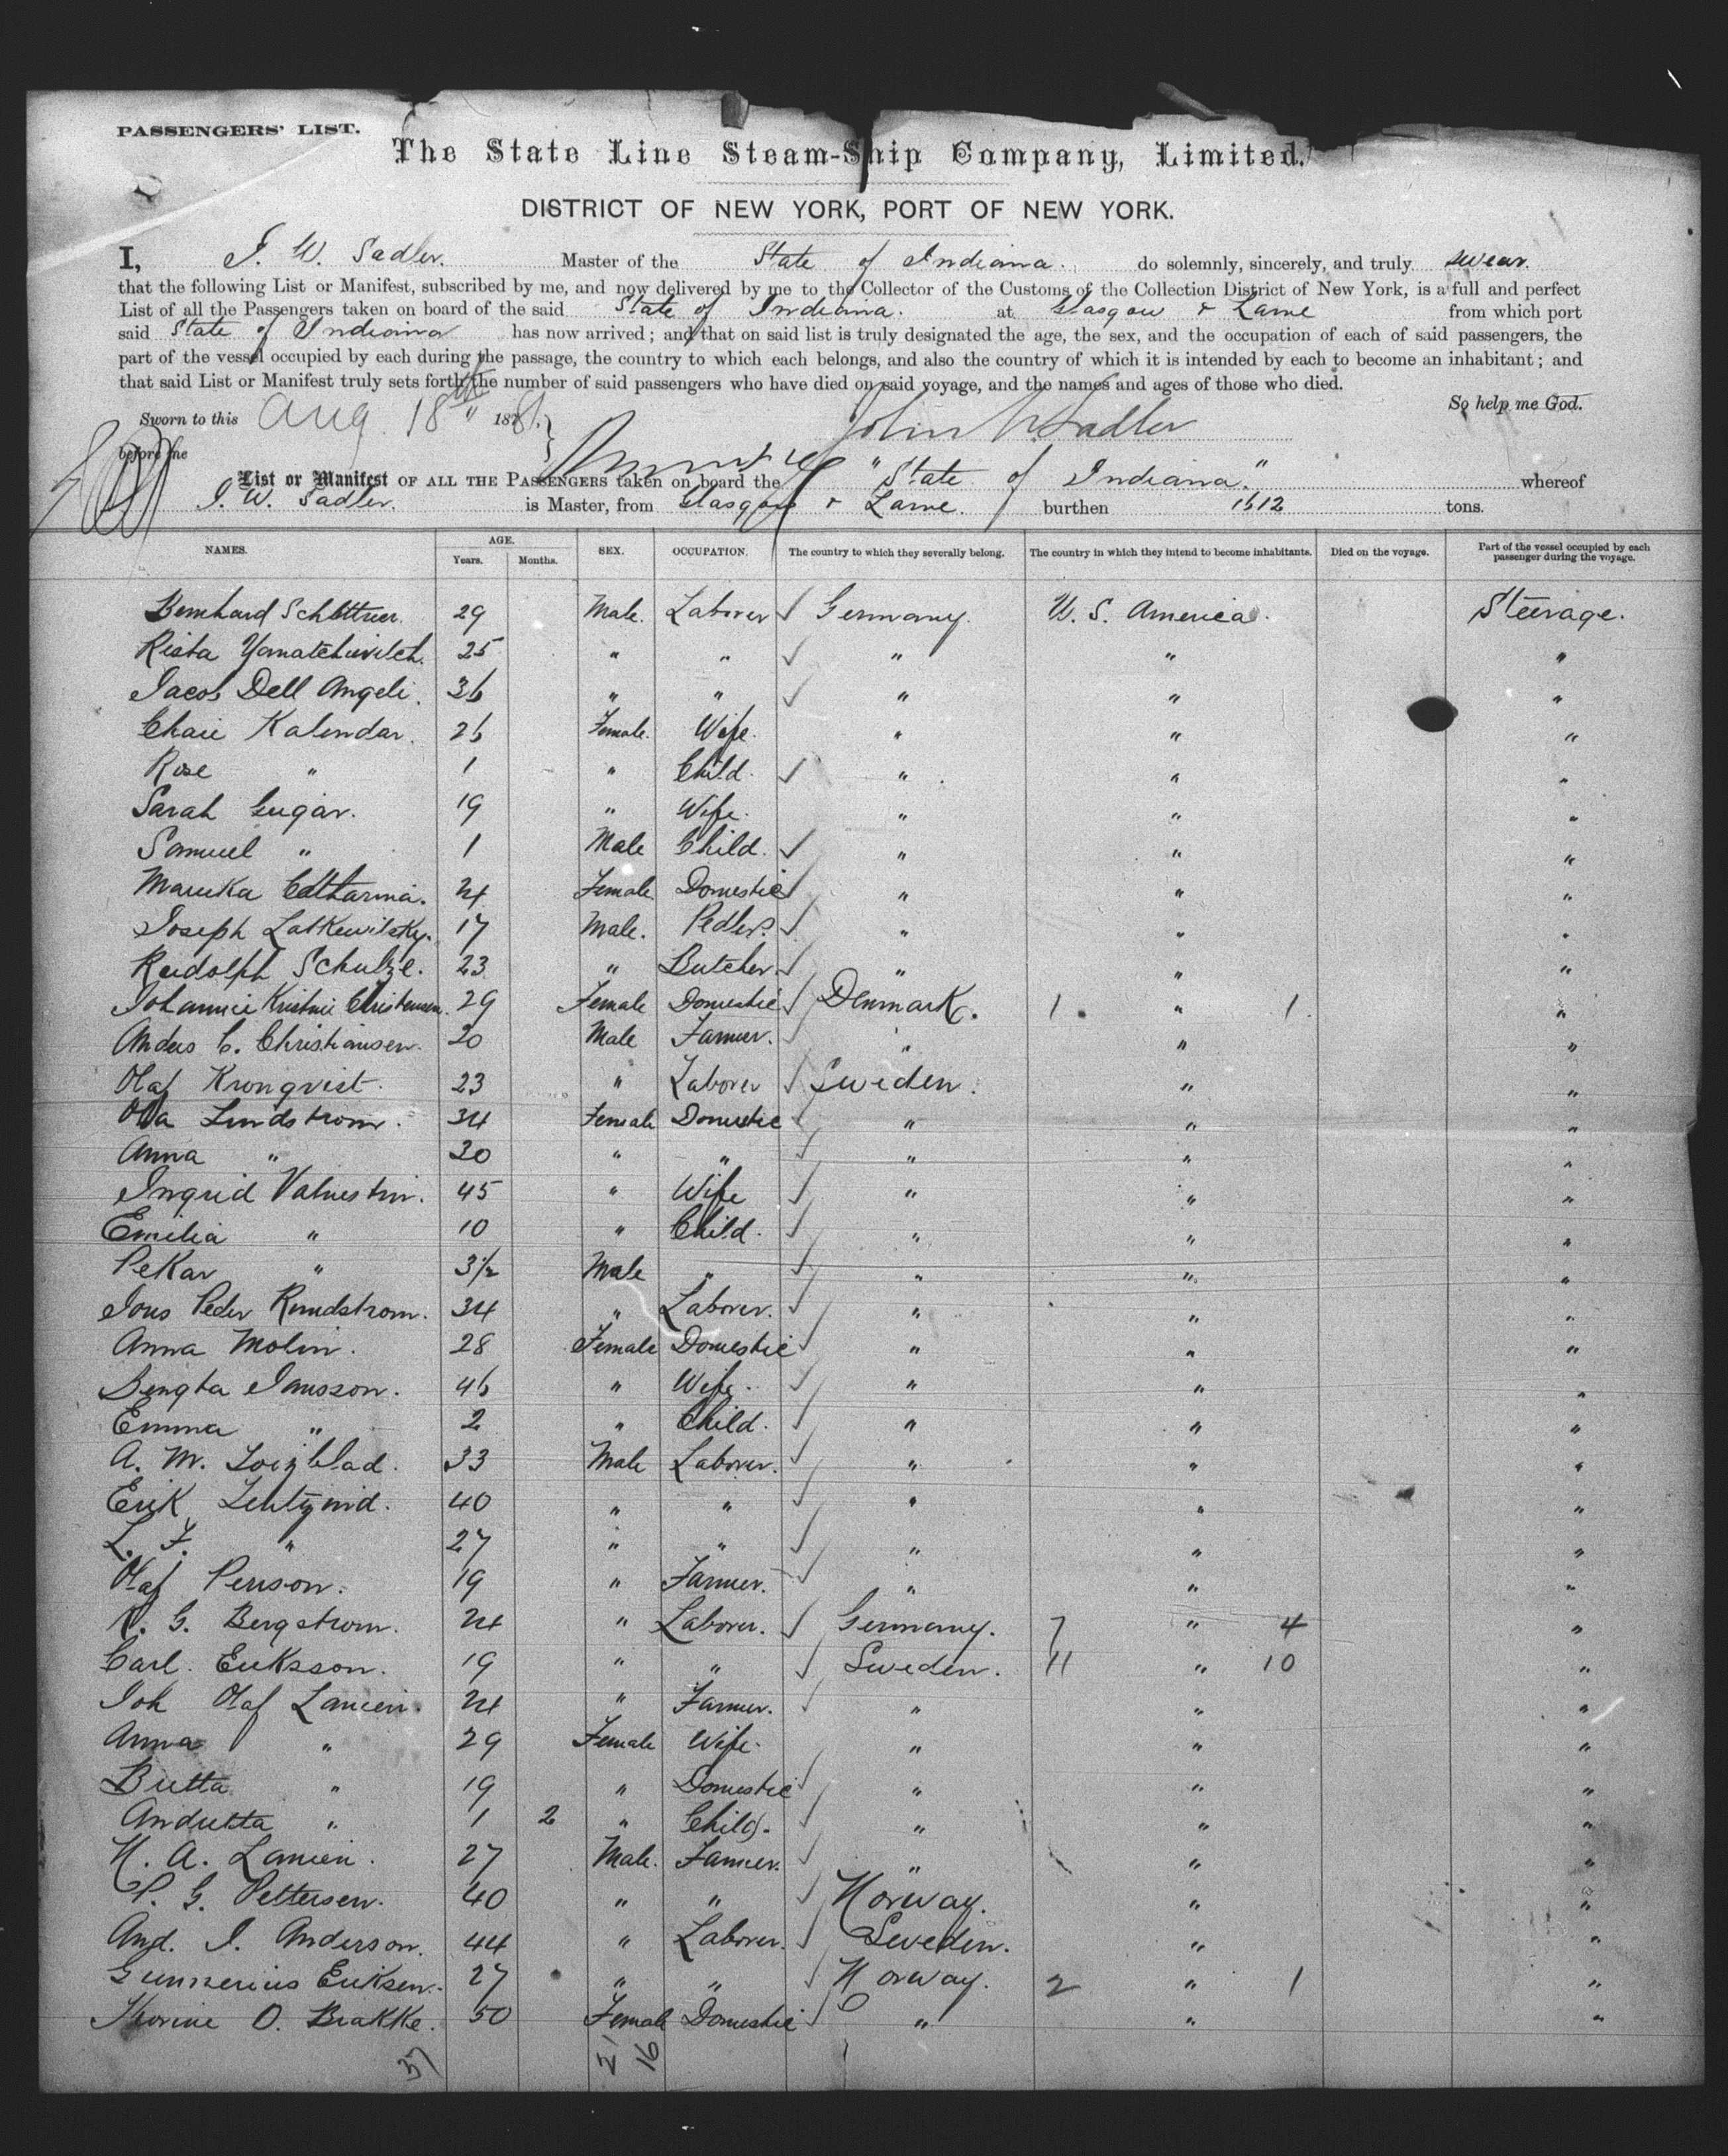 PASSENGERS' LIST.
The State Line Steam-Ship Company, Limited.
DISTRICT OF NEW YORK, PORT OF NEW YORK.
I, J. W. Sadler. Master of the State of Indiana. do solemnly, sincerely, and truly swear.
that the following List or Manifest, subscribed by me, and now delivered by me to the Collector of the Customs of the Collection District of New York, is a full and perfect
List of all the Passengers taken on board of the said State of Indiana. at Glasgow & Larne from which port
said State of Indiana has now arrived; and that on said list is truly designated the age, the sex, and the occupation of each of said passengers, the
part of the vessel occupied by each during the passage, the country to which each belongs, and also the country of which it is intended by each to become an inhabitant; and
that said List or Manifest truly sets forth the number of said passengers who have died on said voyage, and the names and ages of those who died.
So help me God.
Sworn to this Aug 18th 1881.
John W Sadler
before me
List or Manifest OF ALL THE PASSENGERS taken on board the "State of Indiana." whereof
J. W. Sadler. is Master, from Glasgow & Larne. burthen 1612 tons.
NAMES. AGE. Years. Months. SEX. OCCUPATION. The country to which they severally belong. The country in which they intend to become inhabitants. Died on the voyage. Part of the vessel occupied by each passenger during the voyage.
Bernhard Schöttner. 29 Male. Laborer Germany. U. S. America. Steerage.
Rista Yomatchievitch. 25 " " " " "
Jacob Dell Angeli. 36 " " " " "
Chaie Kalendar. 26 Female. Wife. " " "
Rose " 1 " Child. " " "
Sarah Gugar. 19 " Wife. " " "
Samuel " 1 Male Child. " " "
Maruka Catharina. 24 Female Domestic " " "
Joseph Latkewitsky. 17 Male. Pedler. " " "
Rudolph Schulze. 23 " Butcher. " " "
Johannie Kristine Christensen. 29 Female Domestic Denmark. 1 " 1 "
Anders C. Christiansen. 20 Male Farmer. " " "
Olaf Kronqvist. 23 " Laborer Sweden. " "
Ola Lindstrom. 34 Female Domestic " " "
Anna " 30 " " " " "
Ingrid Valnestin. 45 " Wife " " "
Emilia " 10 " Child. " " "
Pekar " 3½ Male " " " "
Jons Peder Rundstrom. 34 " Laborer. " " "
Anna Molin. 28 Female Domestic " " "
Bengta Jansson. 46 " Wife. " " "
Emma " 2 " Child. " " "
A. M. 33 Male Laborer. " " "
Erik 40 " " " " "
L. F. " 27 " " " " "
Olaf Person. 19 " Farmer. " " "
G. Bergstrom. 24 " Laborer. Germany. 7 " 4 "
Carl. Eriksson. 19 " " Sweden. 11 " 10 "
Joh Olaf Larsen. 24 " Farmer. " " "
Anna " 29 Female Wife. " " "
Britta " 19 " Domestic " " "
Andretta " 1 2 " Child. " " "
N. A. Larsen. 27 Male. Farmer. " " "
P. G. Pettersen. 40 " " Norway. " "
And. J. Anderson. 44 " Laborer. Sweden. " "
Gunnerius Eriksen. 27 " " Norway. 2 " 1 "
O. Brakke. 50 Female Domestic " " "
37 21 16